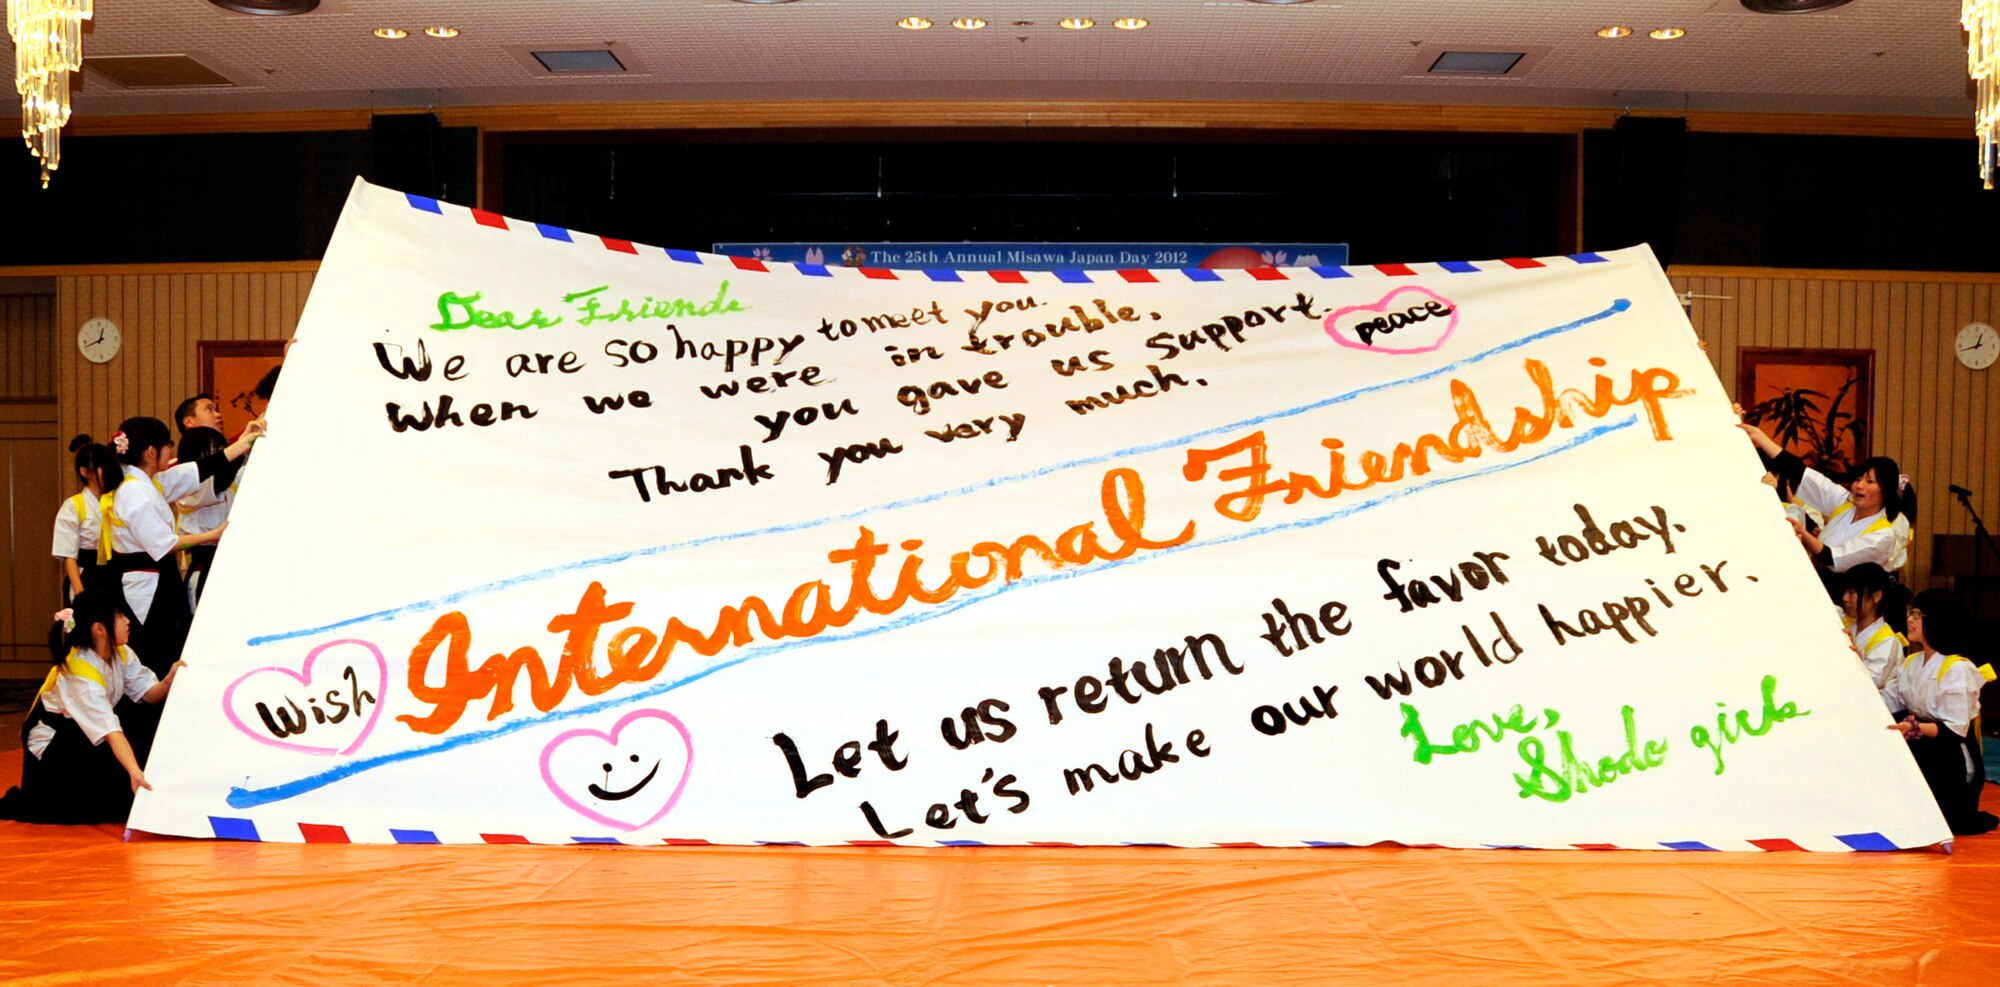 The 25th Annual Misawa Japan Day 2012
Dear Friends
We are so happy to meet you.
When we were in trouble,
you gave us support.
peace
Thank you very much.
International Friendship
wish
Let us return the favor today.
Let's make our world happier.
Love,
Shodo girls